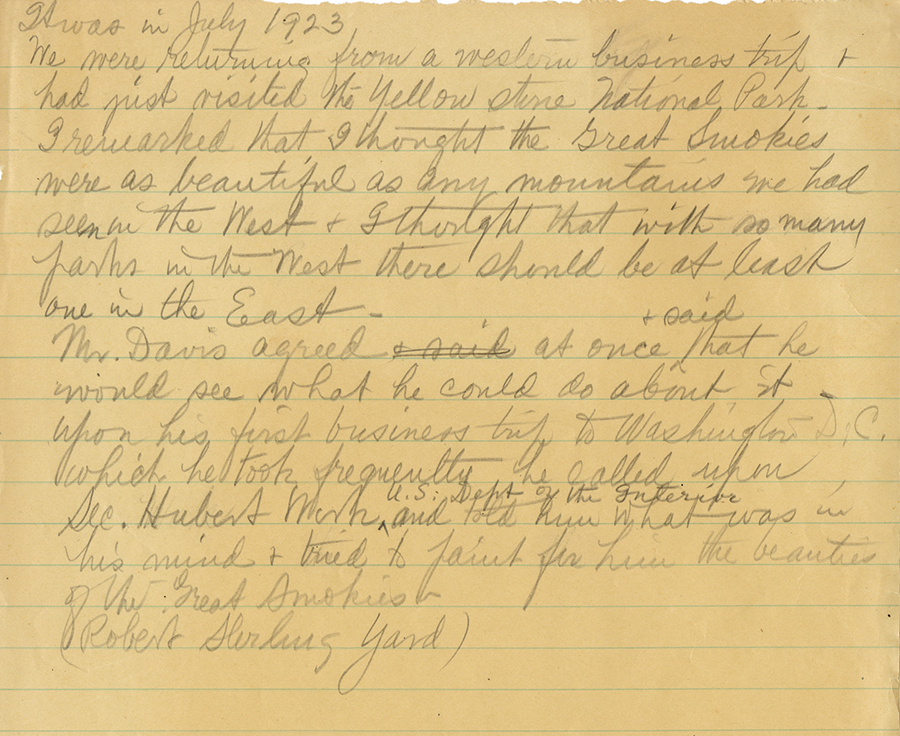 It was in July 1923
We were returning from a western business trip +
had just visited the Yellow stone National Park -
I remarked that I thought the Great Smokies
were as beautiful as any mountains we had
seen in the West + I thought that with so many
parks in the West there should be at least
one in the East -
+ said
Mr. Davis agreed + said at once that he
would see what he could do about it
upon his first business trip to Washington D.C.
which he took frequently he called upon
U.S. Dept of the Interior
Sec. Hubert Work and told him what was in
his mind + tried to paint for him the beauties
of the Great Smokies -
(Robert Sterling Yard)